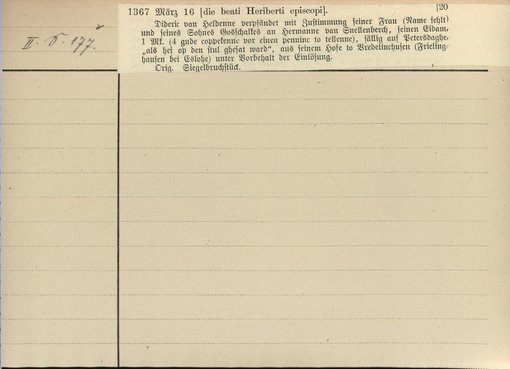 1367 März 16 [die beati Heriberti episcopi]. [20
Dideric van Heldenne verpfändet mit Zustimmung seiner Frau (Name fehlt)
und seines Sohnes Gosschalkes an Hermanne van Snellenberch, seinen Eidam,
1 Mk. (4 gude coppekenne vor einen pennine to tellenne), fällig auf Petersdaghe,
„als hei op den stul ghesat ward“, aus seinem Hofe to Vredelinchusen (Frieling-
hausen bei Eslohe) unter Vorbehalt der Einlösung.
Orig. Siegelbruchstück.
II. 177.